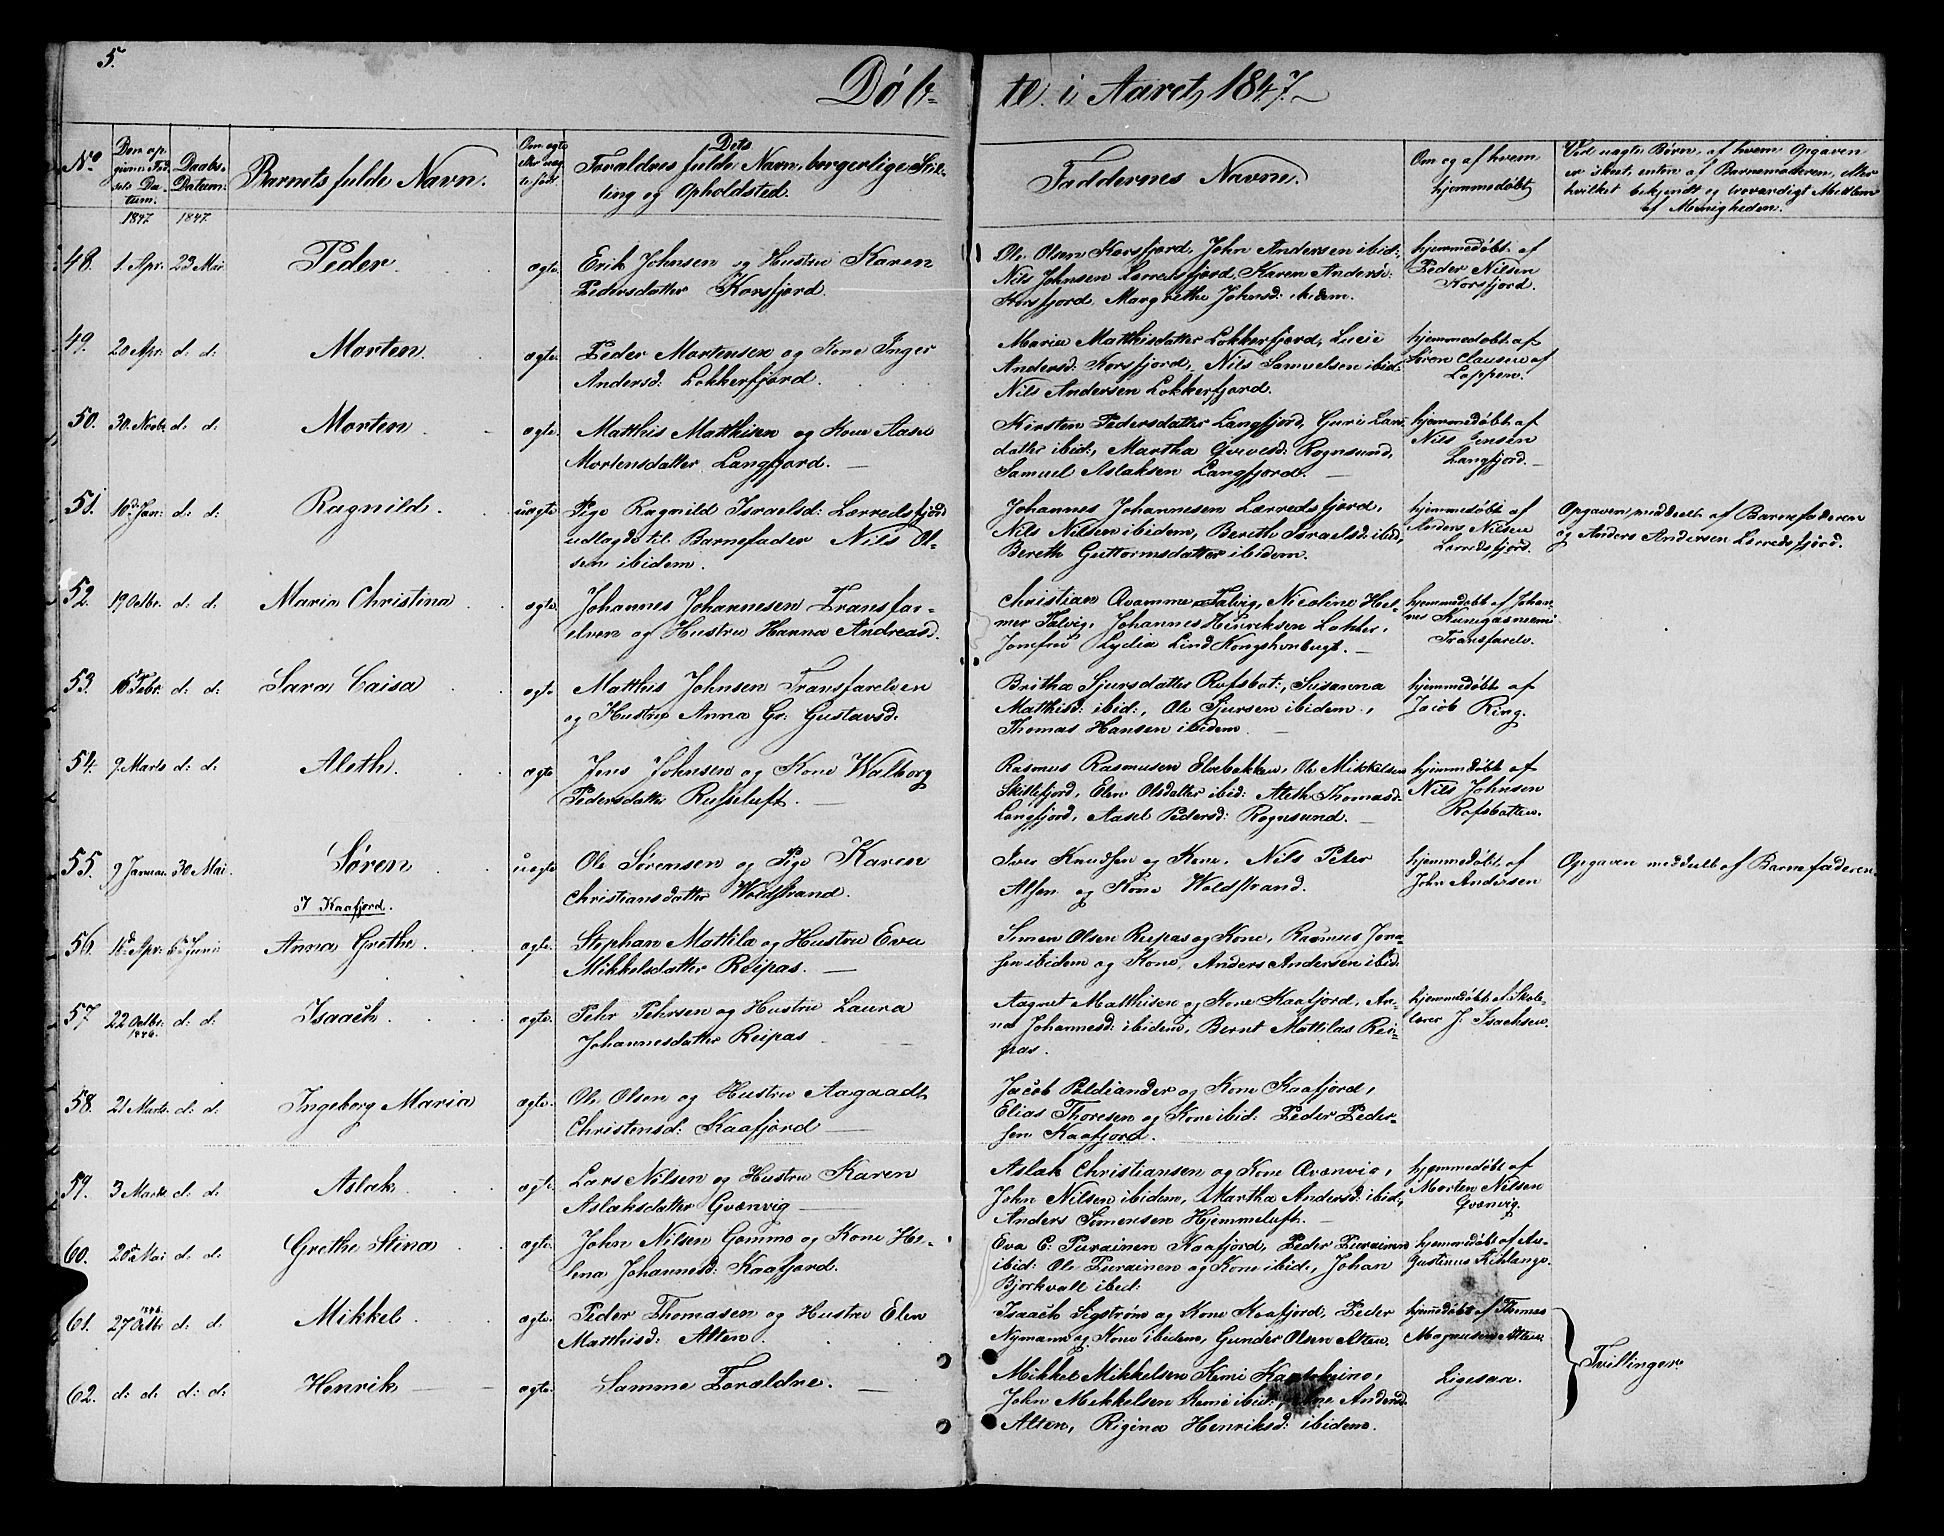 5.
Døb-
te i Aaret 1847.
No
Den op-
givne Fød-
sels Da-
tum.
Daabs-
Datum.
Barnets fulde Navn.
Om ægte
eller uæg-
te født
Dets
Forældres fulde Navn, borgerlige Stil-
ling og Opholdsted.
Faddernes Navne.
Om og af hvem
hjemmedøbt
Ved uægte Børn, af hvem Opgaven
er skeet, enten af Barnemoderen, eller
hvilket bekjendt og troværdigt Medlem
af Menigheden.
1847 1847.
48. 1. Apr. 23 Mai Peder. ægte. Erik Johnsen og Hustru Karen
Pedersdatter Korsfjord.
Ole Olsen Korsfjord, John Andersen ibid:
Nils Johnsen Lerredsfjord, Karen Anders:
Korsfjord, Margrethe Johnsd: ibidem.
hjemmedøbt af
Peder Nilsen
Korsfjord.
49. 20 Apr: d: d: Morten. ægte. Peder Mortensen og Kone Inger
Andersd: Lokkerfjord.
Maria Matthisdatter Lokkerfjord, Lucie
Andersd: Korsfjord, Nils Samuelsen ibid:
Nils Andersen Lokkerfjord.
hjemmedøbt af
Søren Clausen af
Loppen.
50. 30. Novbr. d: d: Morten. ægte. Matthis Matthisen og Kone Aase
Mortensdatter Langfjord.
Kirsten Pedersdatter Langfjord, Guri Lars-
datter ibid:, Martha Qvivesd: Rognsund,
Samuel Aslaksen Langfjord.
hjemmedøbt af
Nils Jensen
Langfjord.
51. 16d Jan: d: d: Ragnild. uægte Pige Ragnild Israelsd: Lærredsfjord
udlagde til Barnefader Nils Ol-
sen ibidem.
Johannes Johannesen Lærredsfjord,
Nils Nilsen ibidem, Bereth Israelsd: ibid,
Bereth Guttormsdatter ibidem.
hjemmedøbt af
Anders Nilsen
Lerredsfjord.
Opgaven meddeelt af Barnefaderen
og Anders Andersen Lerredsfjord.
52. 19 Octbr. d: d: Maria Christina ægte. Johannes Johannesen Transfar-
elven og Hustru Hanna Andreasd.
Christian Qvamme Talvig, Nicoline Hel-
mer Talvig, Johannes Henriksen Lokker,
Jomfru Lydia Lind Kongshavnbugt.
hjemmedøbt af Johan-
nes Kunigasniemi
Transfarelv.
53. 16 Febr. d: d: Sara Caisa ægte. Matthis Johnsen Transfarelven
og Hustru Anna Gr: Gustavsd.
Britha Sjursdatter Rafsbot:, Susanna
Matthisd: ibid:, Ole Sjursen ibidem,
Thomas Hansen ibidem.
hjemmedøbt af
Jacob Ring.
54. 9. Marts d: d: Aleth. ægte Jens Johnsen og Kone Walborg
Pedersdatter Russeluft.
Rasmus Rasmusen Elvebakken, Ole Mikkelsen
Skillefjord, Elen Olsdatter ibid: Aleth Thomasd:
Langfjord, Aasel Pedersd: Rognsund.
hjemmedøbt af
Nils Johnsen
Rafsbotten.
55. 9 Januar 30 Mai. Søren uægte Ole Sørensen og Pige Karen
Christiansdatter Woldstrand.
Iver Knudsen og Kone, Nils Peter
Alsen og Kone Woldstrand.
hjemmedøbt af
John Andersen
Opgaven meddeelt af Barnefaderen.
I Kaafjord.
56. 16d Apr: 6te Juni Anna Grethe. ægte. Stephan Mattila og Hustru Eva
Mikkelsdatter Reipas.
Simon Olsen Reipas og Kone, Rasmus Jora-
sen ibidem og Kone, Anders Andersen ibid.
57 22 Octbr. 1846. d: d: Isaach. ægte. Pehr Pehrsen og Hustru Laura
Johannesdatter Reipas
Aagnet Matthisen og Kone Kaafjord, An-
na Johannesd: ibidem, Bernt Mattilas Rei-
pas.
hjemmedøbt af Skole-
lærer J. Isachsen.
58. 21 Marts. d: d: Ingeborg Maria ægte. Ole Olsen og Hustru Aagaadt
Christensd: Kaafjord
Jacob Paldiander og Kone Kaafjord,
Elias Thoresen og Kone ibid: Peder Peder-
sen Kaafjord.
59. 3 Marts d: d: Aslak ægte. Lars Nilsen og Hustru Karen
Aslaksdatter Qvænvig
Aslak Christiansen og Kone Qvænvig,
John Nilsen ibidem, Martha Andersd: ibid,
Anders Simensen Hjemmeluft.
hjemmedøbt af
Morten Nilsen
Qvænvig.
60. 20d Mai d: d: Grethe Stina ægte. John Nilsen Gammo og Kone He-
lena Johannesd: Kaafjord.
Eva C. Purainen Kaafjord, Peder Purainen
ibid: Ole Purainen og Kone ibid:, Johan
Bjorkvall ibid:
hjemmedøbt af Au-
gustinus Kihlange.
61. 27 Octbr 1846. d: d: Mikkel. ægte. Peder Thomasen og Hustru Elen
Matthisd: Alten
Isaach Sigstrøm og Kone Kaafjord, Peder
Nymann og Kone ibidem, Gunder Olsen Alten.
hjemdøbt af Thomas
Magnusen Alten
62. d: d: d: d: Henrik ægte. Samme Forældre.
Mikkel Mikkelsen Kemi Kautokeino,
John Mikkelsen Kemi ibid: Andersd.
Alten, Rigina Henriksd: ibidem.
Ligesaa.
Tvillinger.